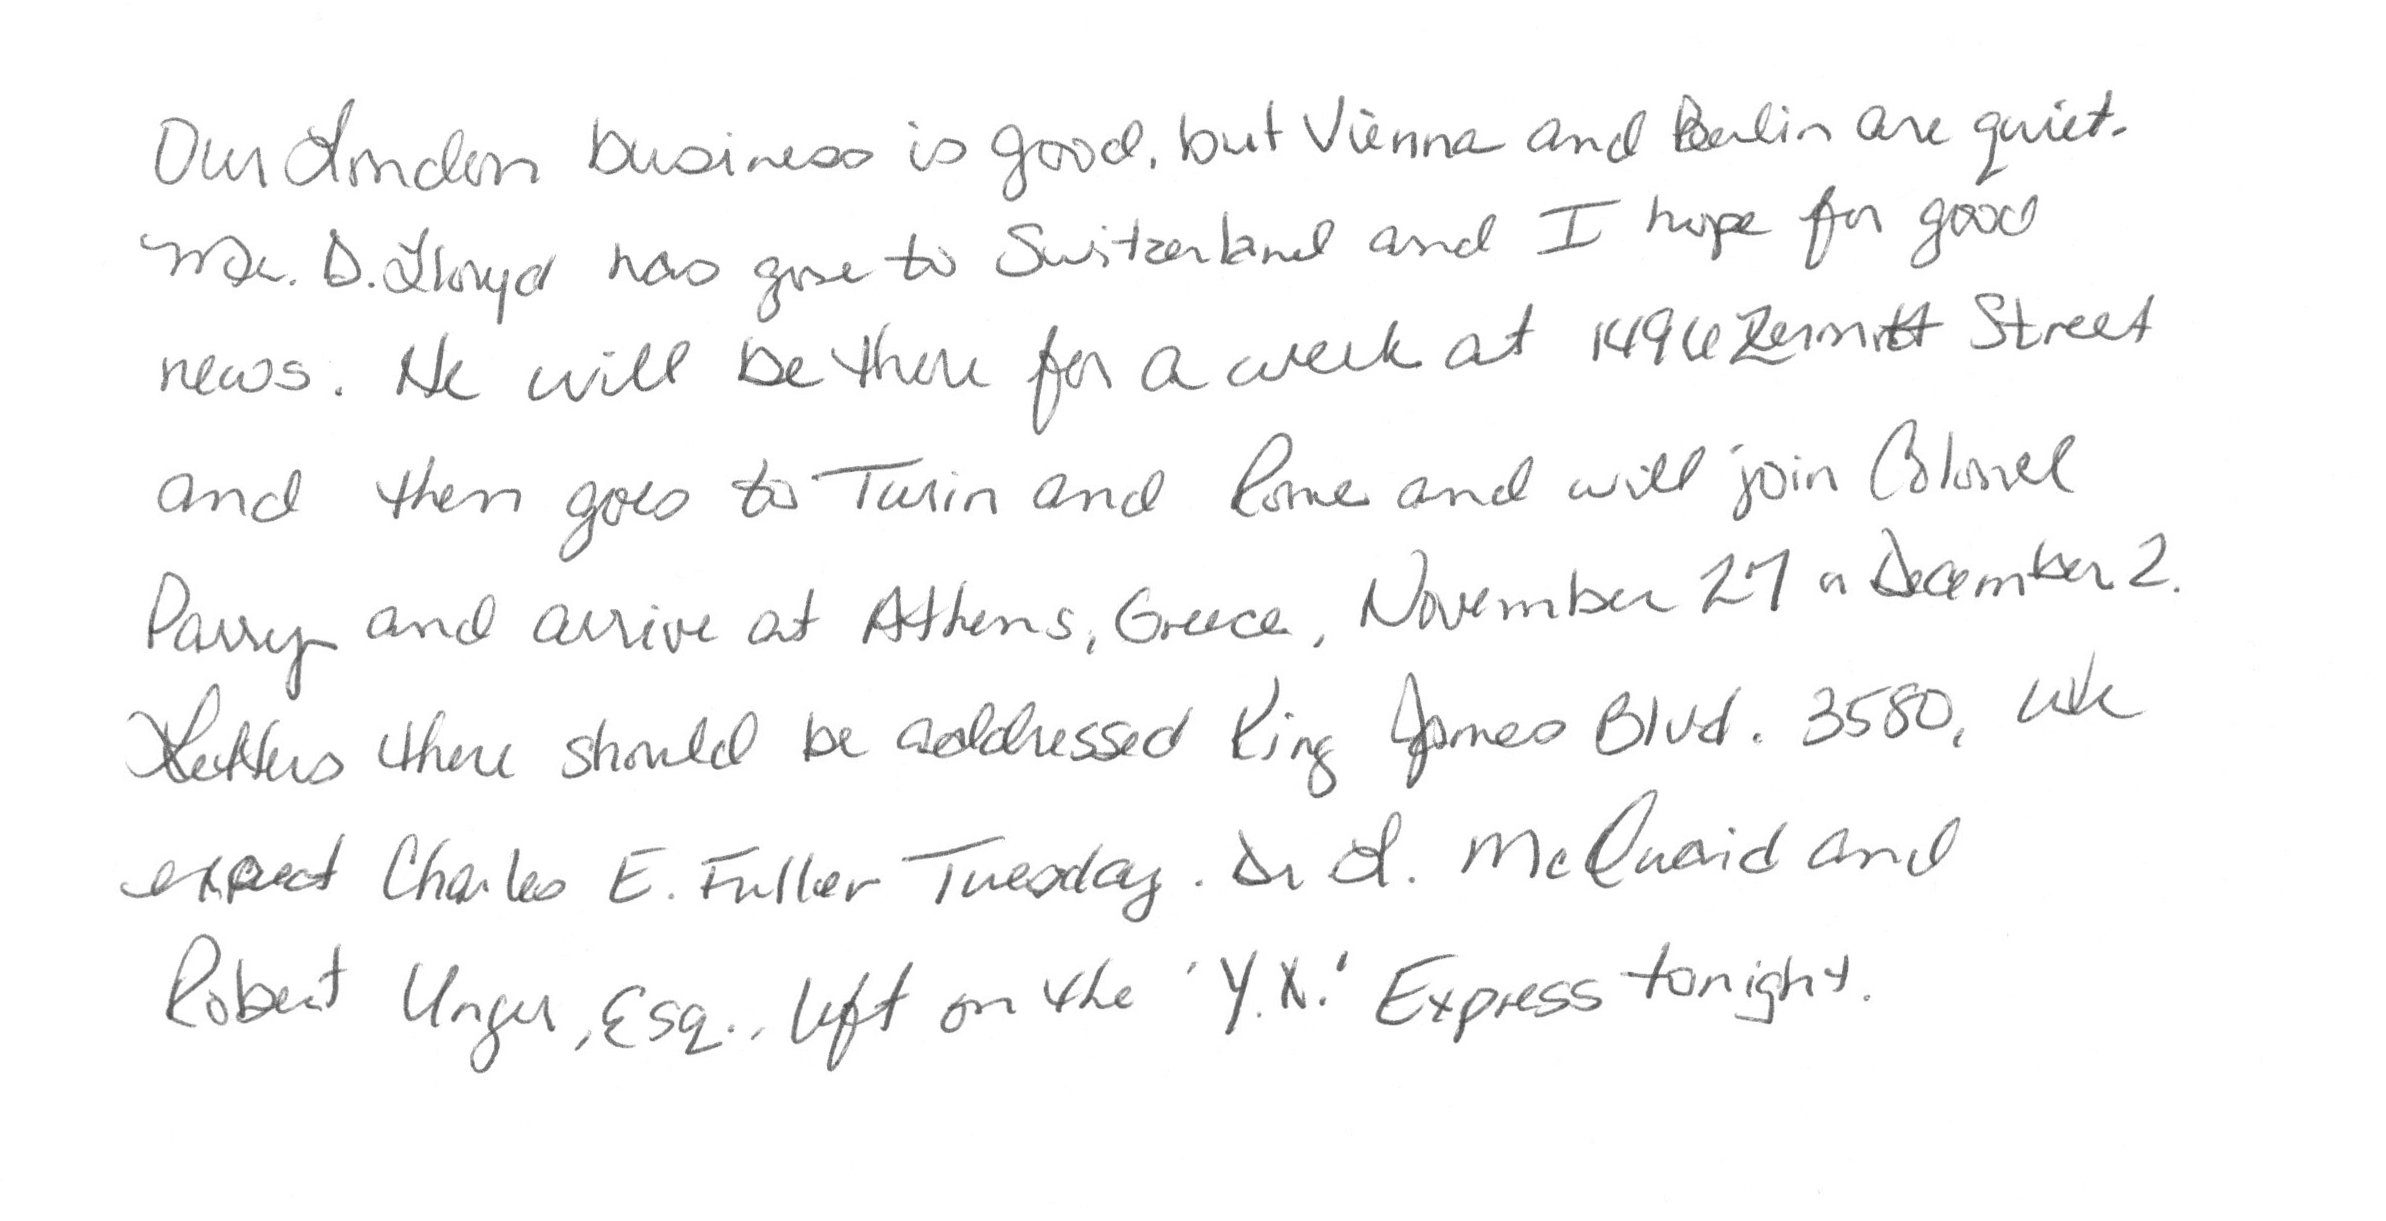 Our London business is good, but Vienna and Berlin are quiet.
Mr. D. Lloyd has gone to Switzerland and I hope for good
news. He will be there for a week at 1496 Zermott Street
and then goes to Turin and Rome and will join Colonel
Parry and arrive at Athens, Greece, November 27 or December 2.
Letters there should be addressed King James Blvd. 3580, We
expect Charles E. Fuller Tuesday. Dr L. McQuaid and
Robert Unger, Esq., left on the 'Y.X.' Express tonight.